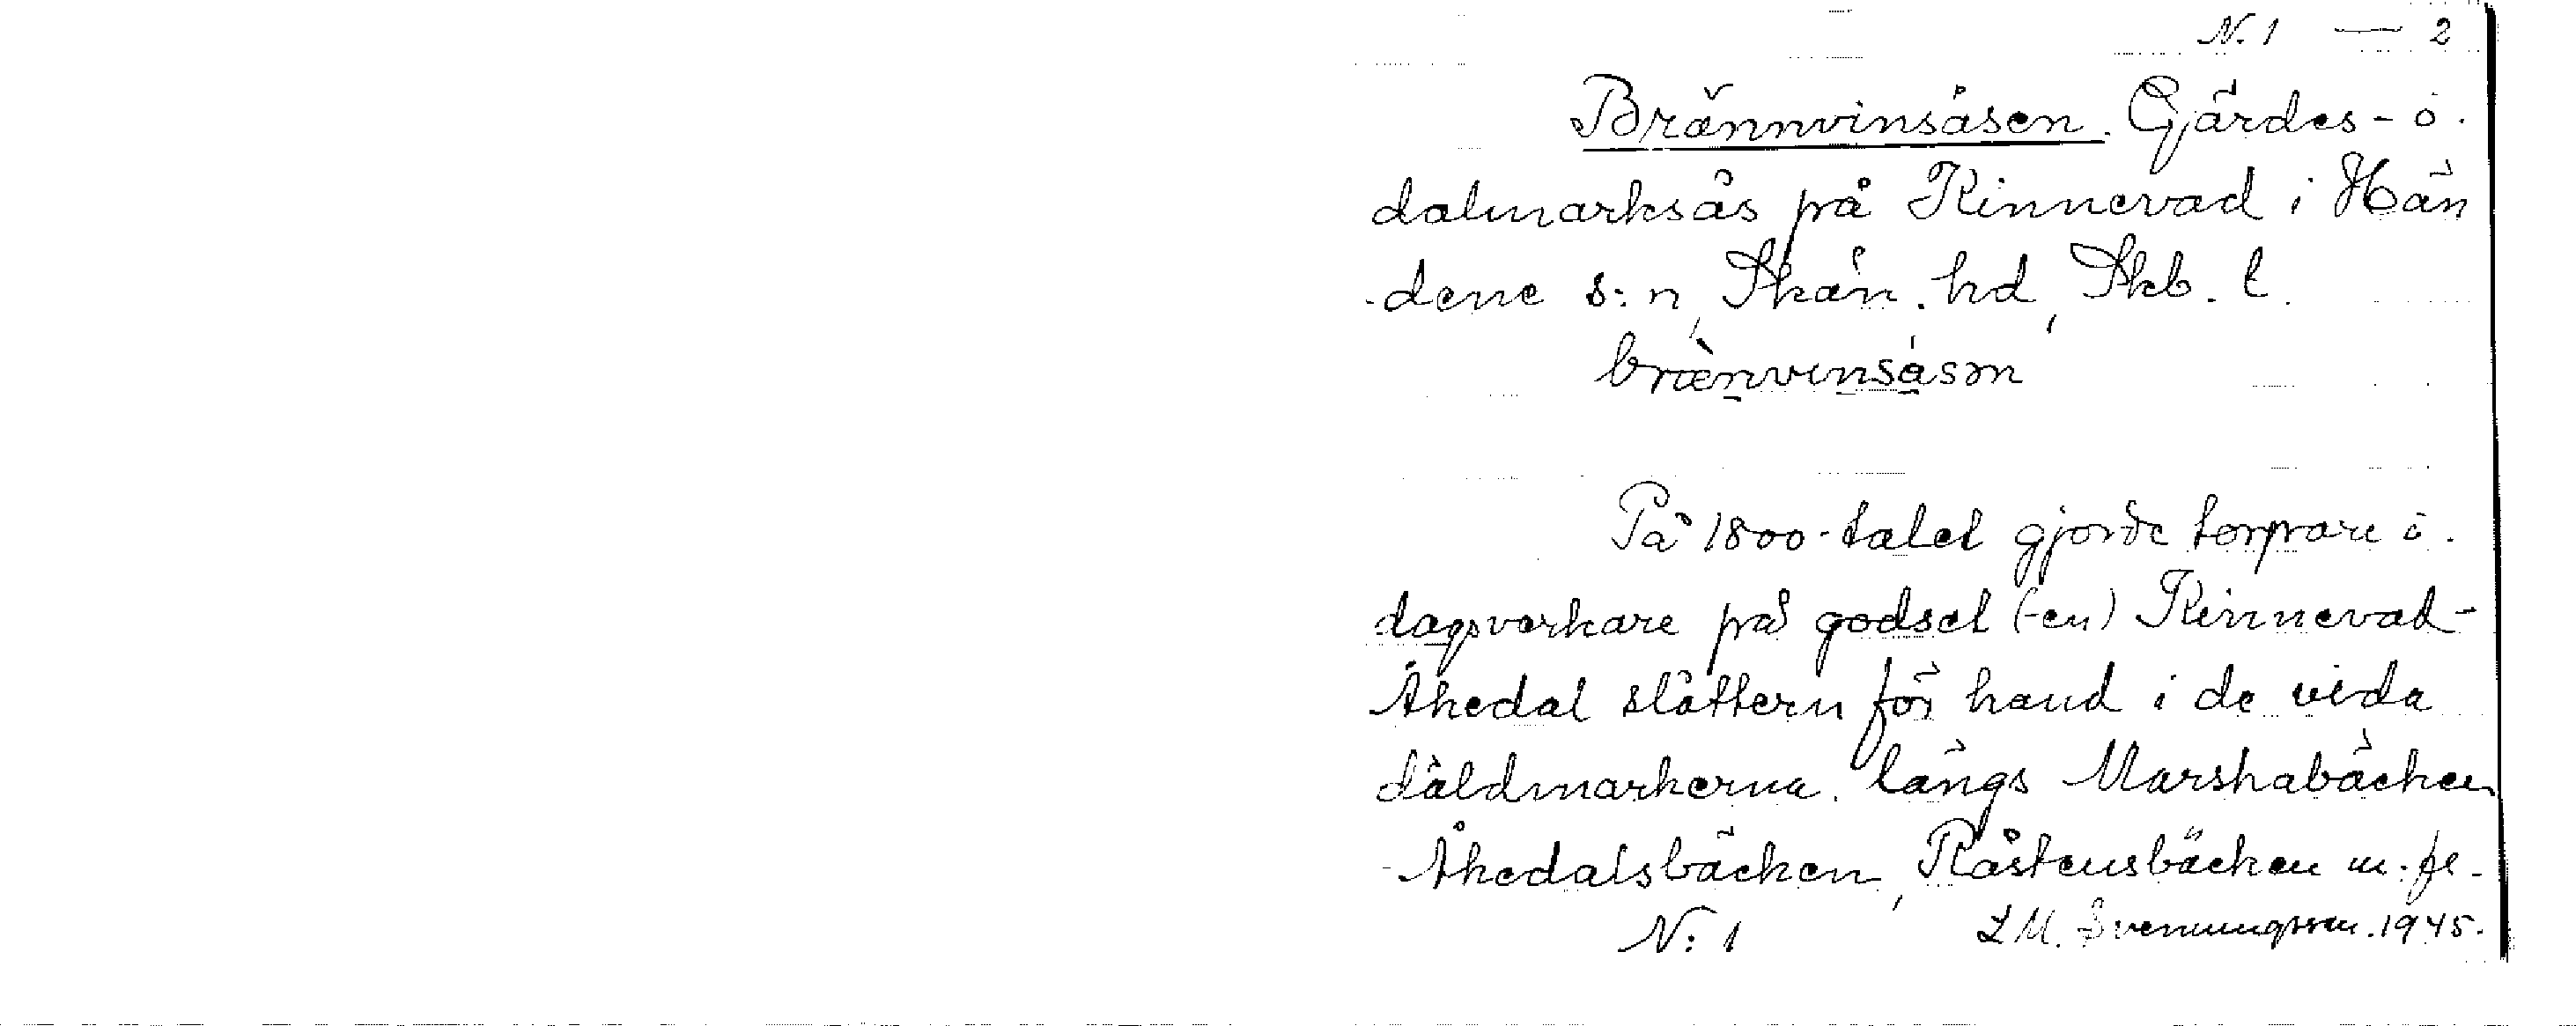 N. 1 — 2
Brännvinsåsen. Gärdes- o.
dalmarksås på Kinnevad i Hän
dene s:n, Skån. hd, Skb. l.
brænvinsåsən
På 1800-talet gjorde torpare o.
dagsverkare på godset (-en) Kinnevad-
Åkedal slåttern för hand i de vida
däldmarkerna längs Marshabäcken
Åkedalsbäcken, Råstensbäcken m. fl.
N: 1 L M. Svenungsson. 1945.